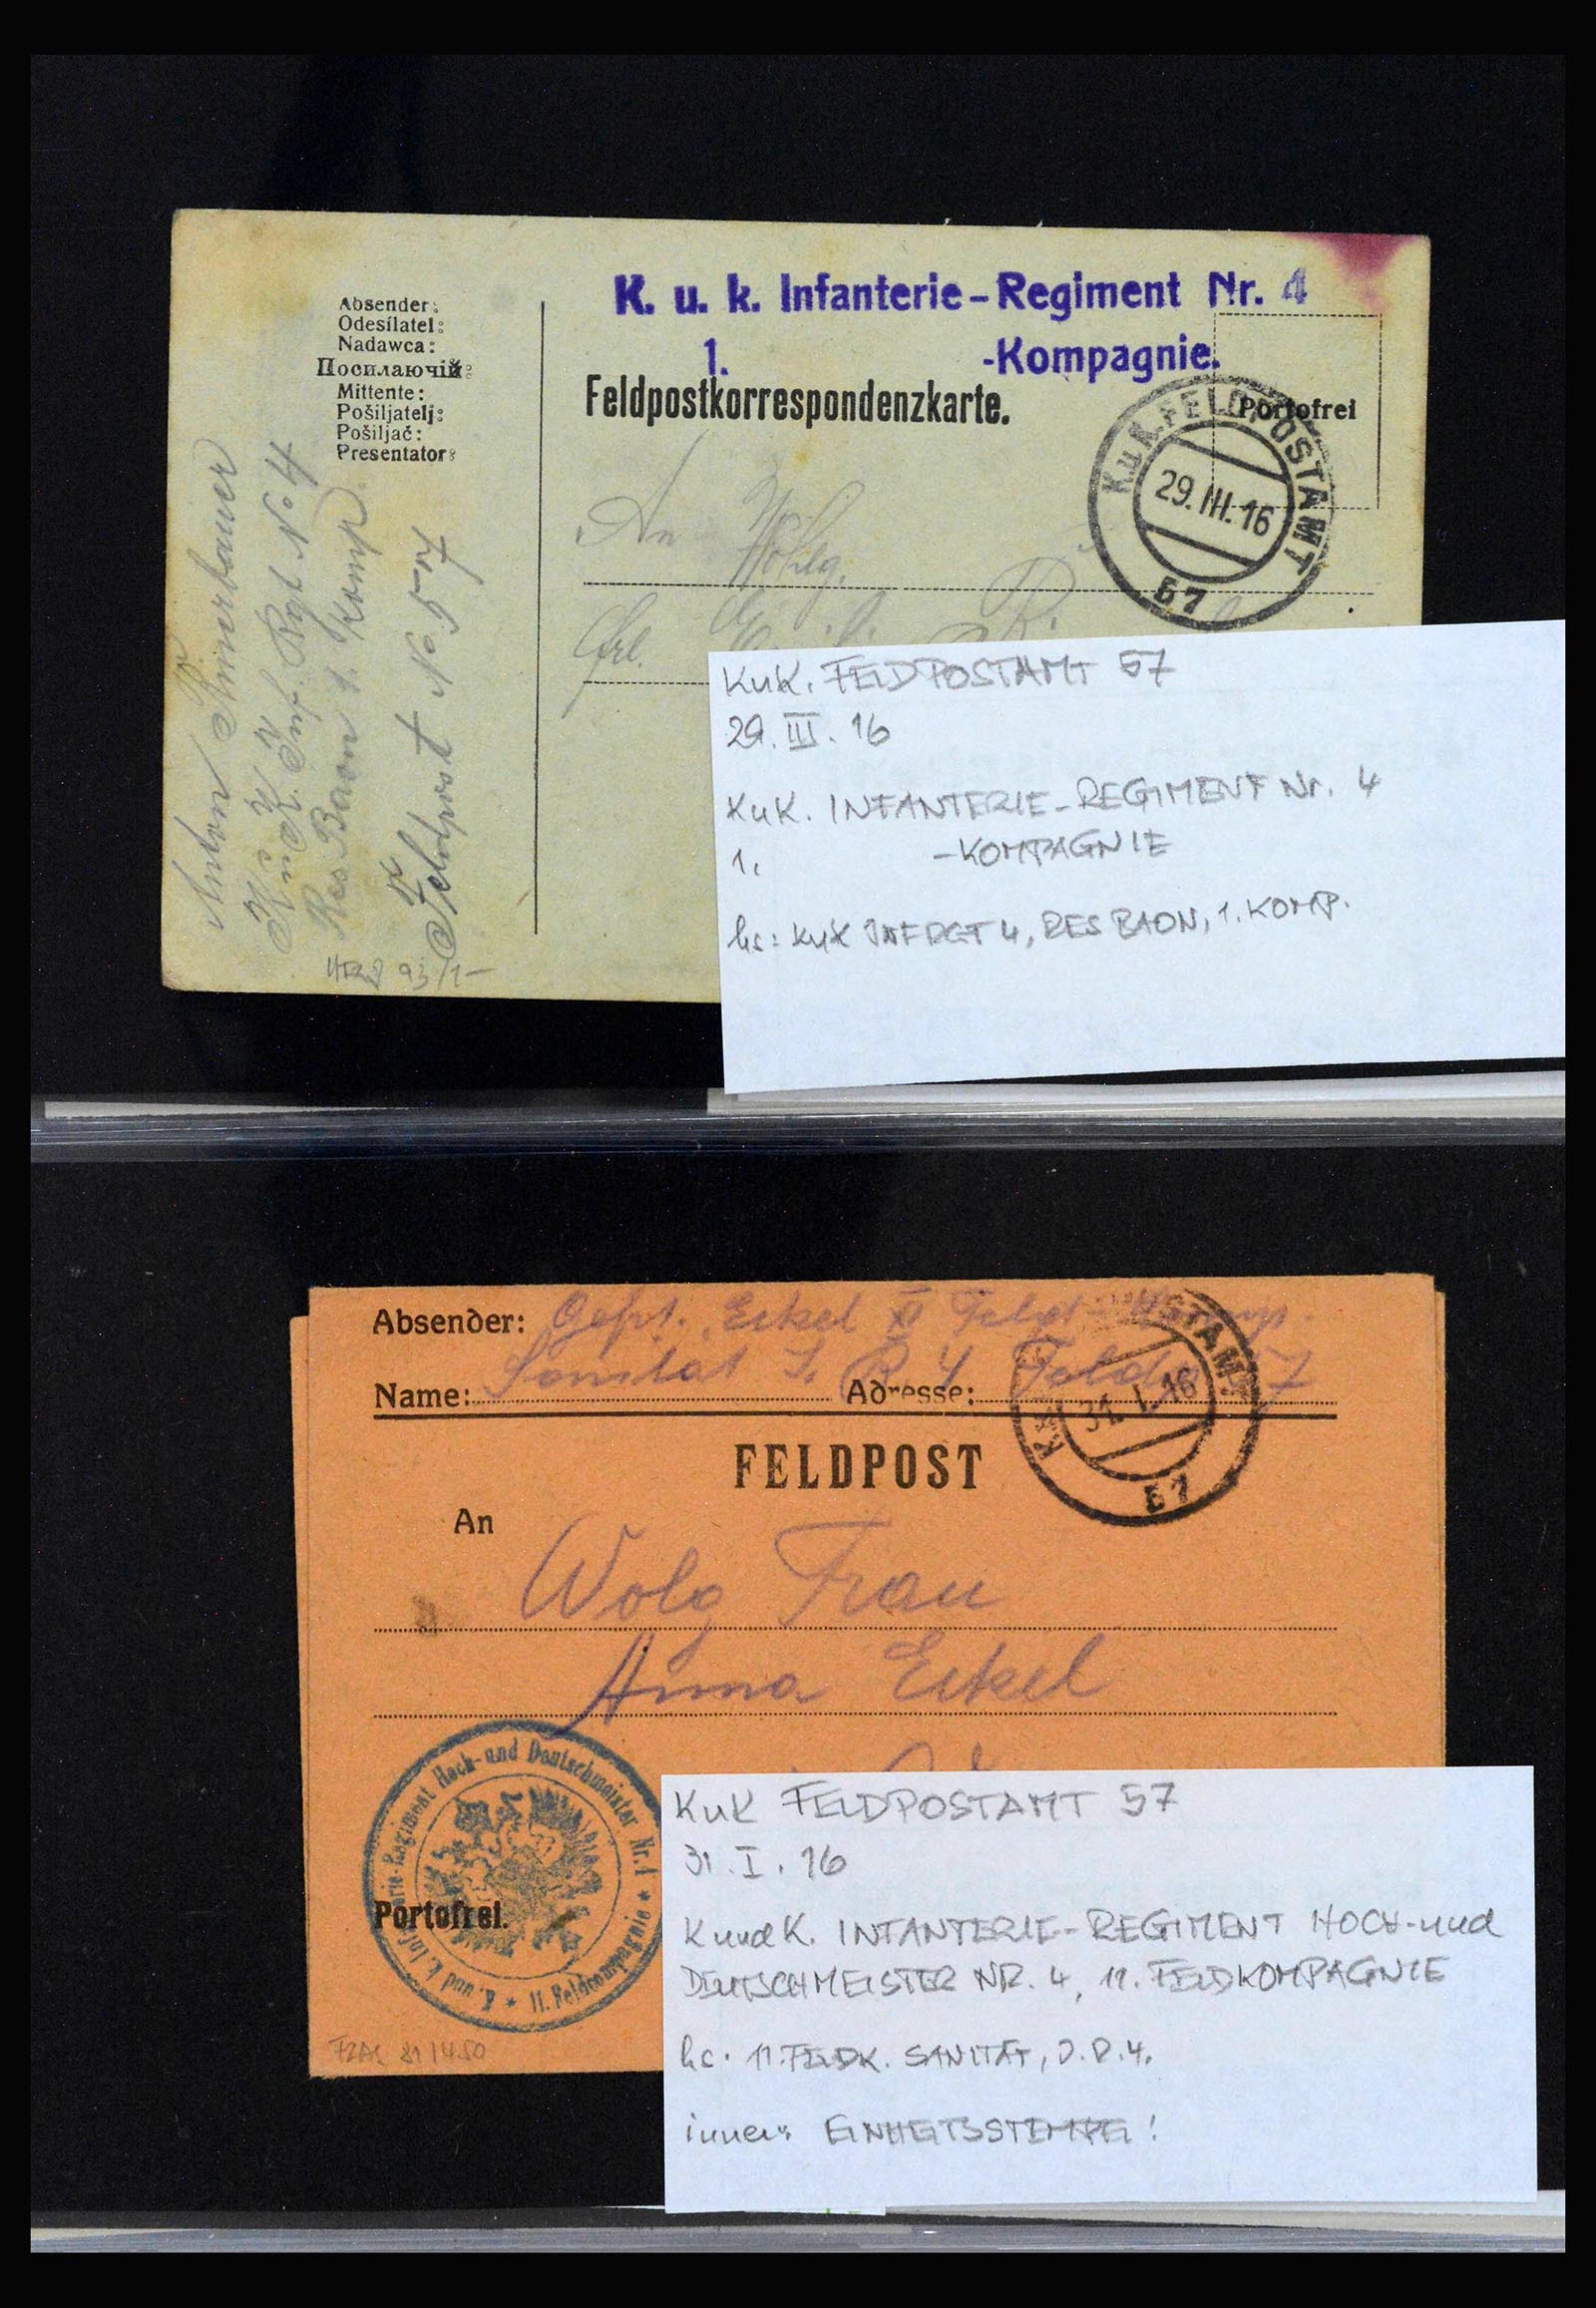 K. u. k. Infanterie-Regiment Nr. 4
1. -Kompagnie.
Absender:
Odesílatel:
Nadawca:
Посилаючій:
Mittente:
Pošiljatelj:
Pošiljač:
Presentator:
Feldpostkorrespondenzkarte.
Portofrei
K.u.K. FELDPOSTAMT
29. III. 16
57
An
Frl.
Anton
K. u. K. Inf. Rgt No 4
Res Baon 1. Komp
Feldpost No 57
KuK. FELDPOSTAMT 57
29. III. 16
KuK. INFANTERIE-REGIMENT Nr. 4
1. -KOMPAGNIE
hs: KuK INF RGT 4, RES BAON, 1. KOMP.
Absender: Gefr. Eckel XI Feld Komp.
Sanität I. R 4 Feldp 57
Name: Adresse:
31. I. 16
57
FELDPOST
An
Wolg Frau
Anna Eckel
K. und k. Infanterie-Regiment Hoch- und Deutschmeister Nr. 4 * 11. Feldcompagnie *
Portofrei.
KuK FELDPOSTAMT 57
31. I. 16
K und K. INFANTERIE-REGIMENT HOCH-und
DEUTSCHMEISTER NR. 4, 11. FELDKOMPAGNIE
hs. 11. FELDK. SANITÄT, I.R.4.
innen: EINHEITSSTEMPEL!